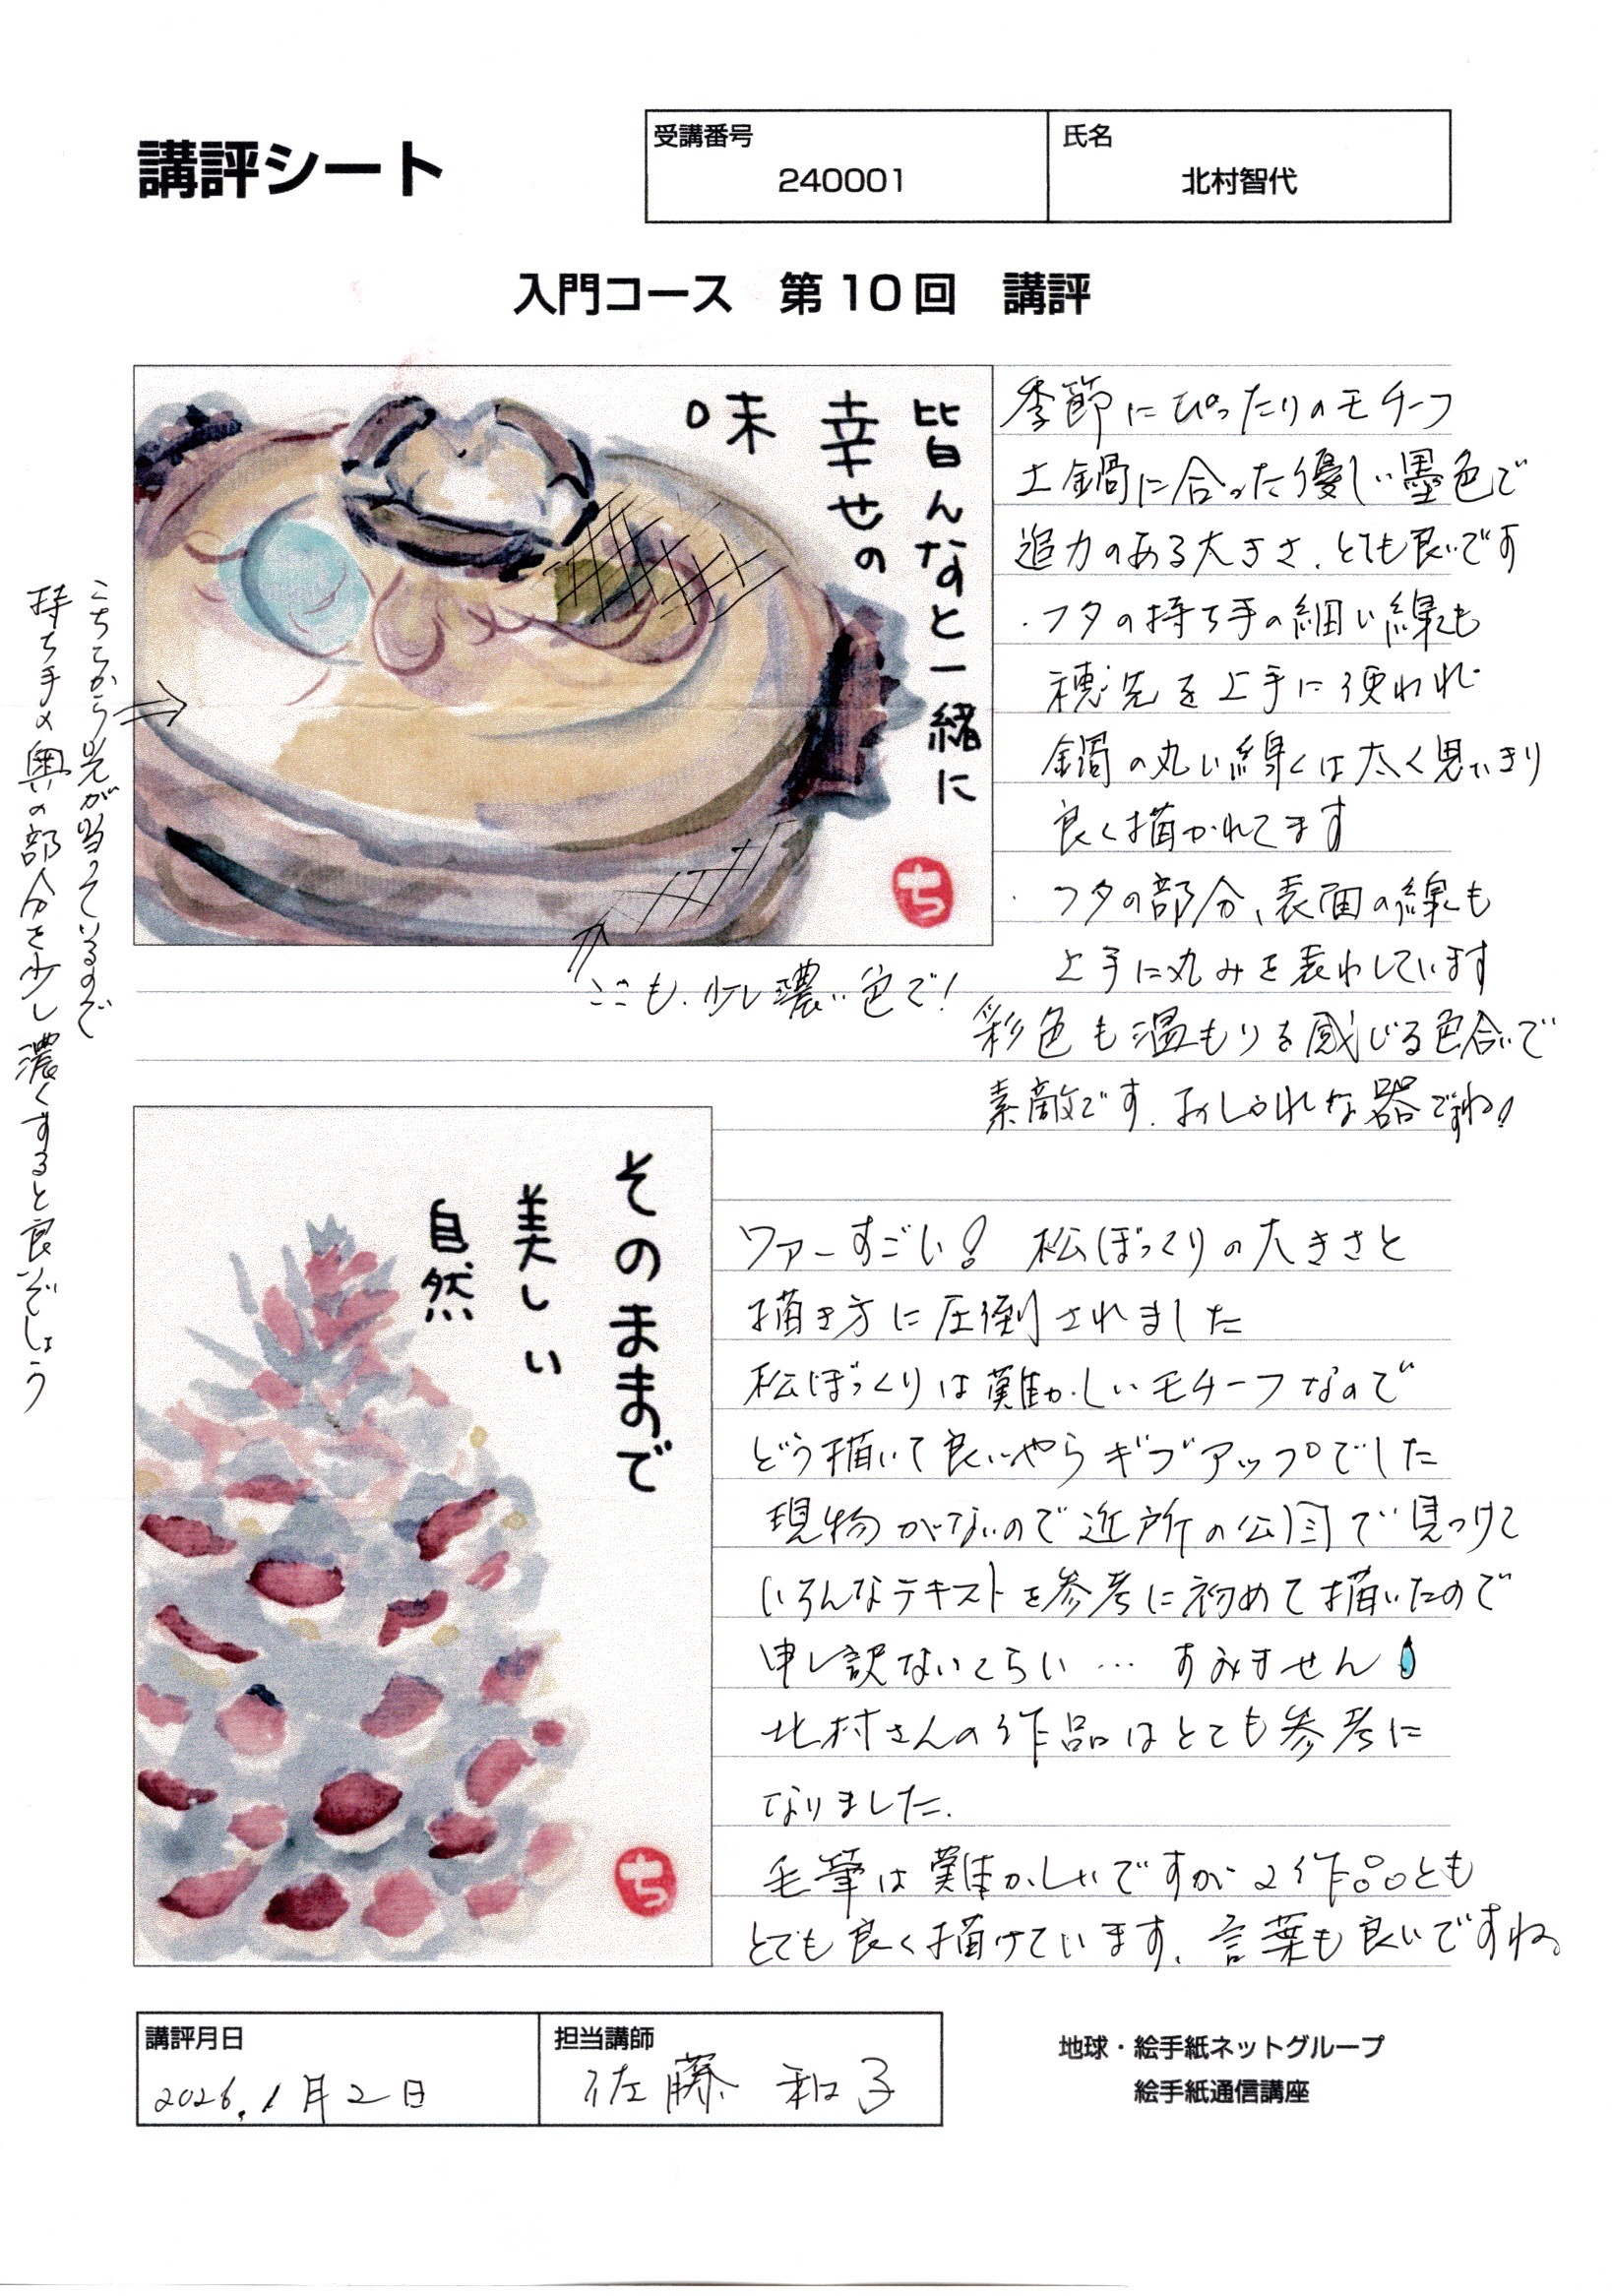 講評シート
受講番号
240001
氏名
北村智代
入門コース 第10回 講評
皆んなと一緒に
幸せの
味
ち
季節にぴったりのモチーフ
土鍋に合った優しい墨色で
迫力のある大きさ、とても良いです
・フタの持ち手の細い線も
穂先を上手に使われ
鍋の丸い線は太く思いきり
良く描かれてます
・フタの部分、表面の線も
上手に丸みを表わしています
彩色も温もりを感じる色合いで
素敵です。おしゃれな器ですね!
こちらから光が当っているので
持ち手の奥の部分を少し濃くすると良いでしょう
ここも、少し濃い色で!
そのままで
美しい
自然
ち
ワァーすごい! 松ぼっくりの大きさと
描き方に圧倒されました
松ぼっくりは難かしいモチーフなので
どう描いて良いやらギブアップでした
現物がないので近所の公園で見つけて
いろんなテキストを参考に初めて描いたので
申し訳ないくらい… すみません
北村さんの作品はとても参考に
なりました.
毛筆は難かしいですが2作品とも
とても良く描けています。言葉も良いですね。
講評月日
2026.1月2日
担当講師
佐藤 和子
地球・絵手紙ネットグループ
絵手紙通信講座